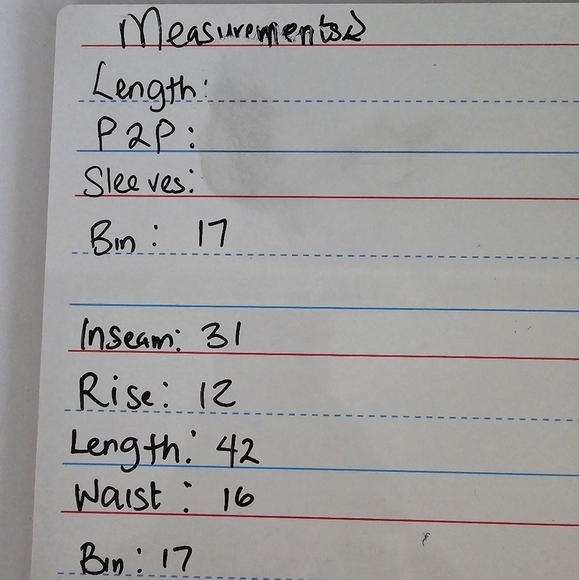 Measurements
Length:
P2P:
Sleeves:
Bin: 17
Inseam: 31
Rise: 12
Length: 42
Waist: 16
Bin: 17